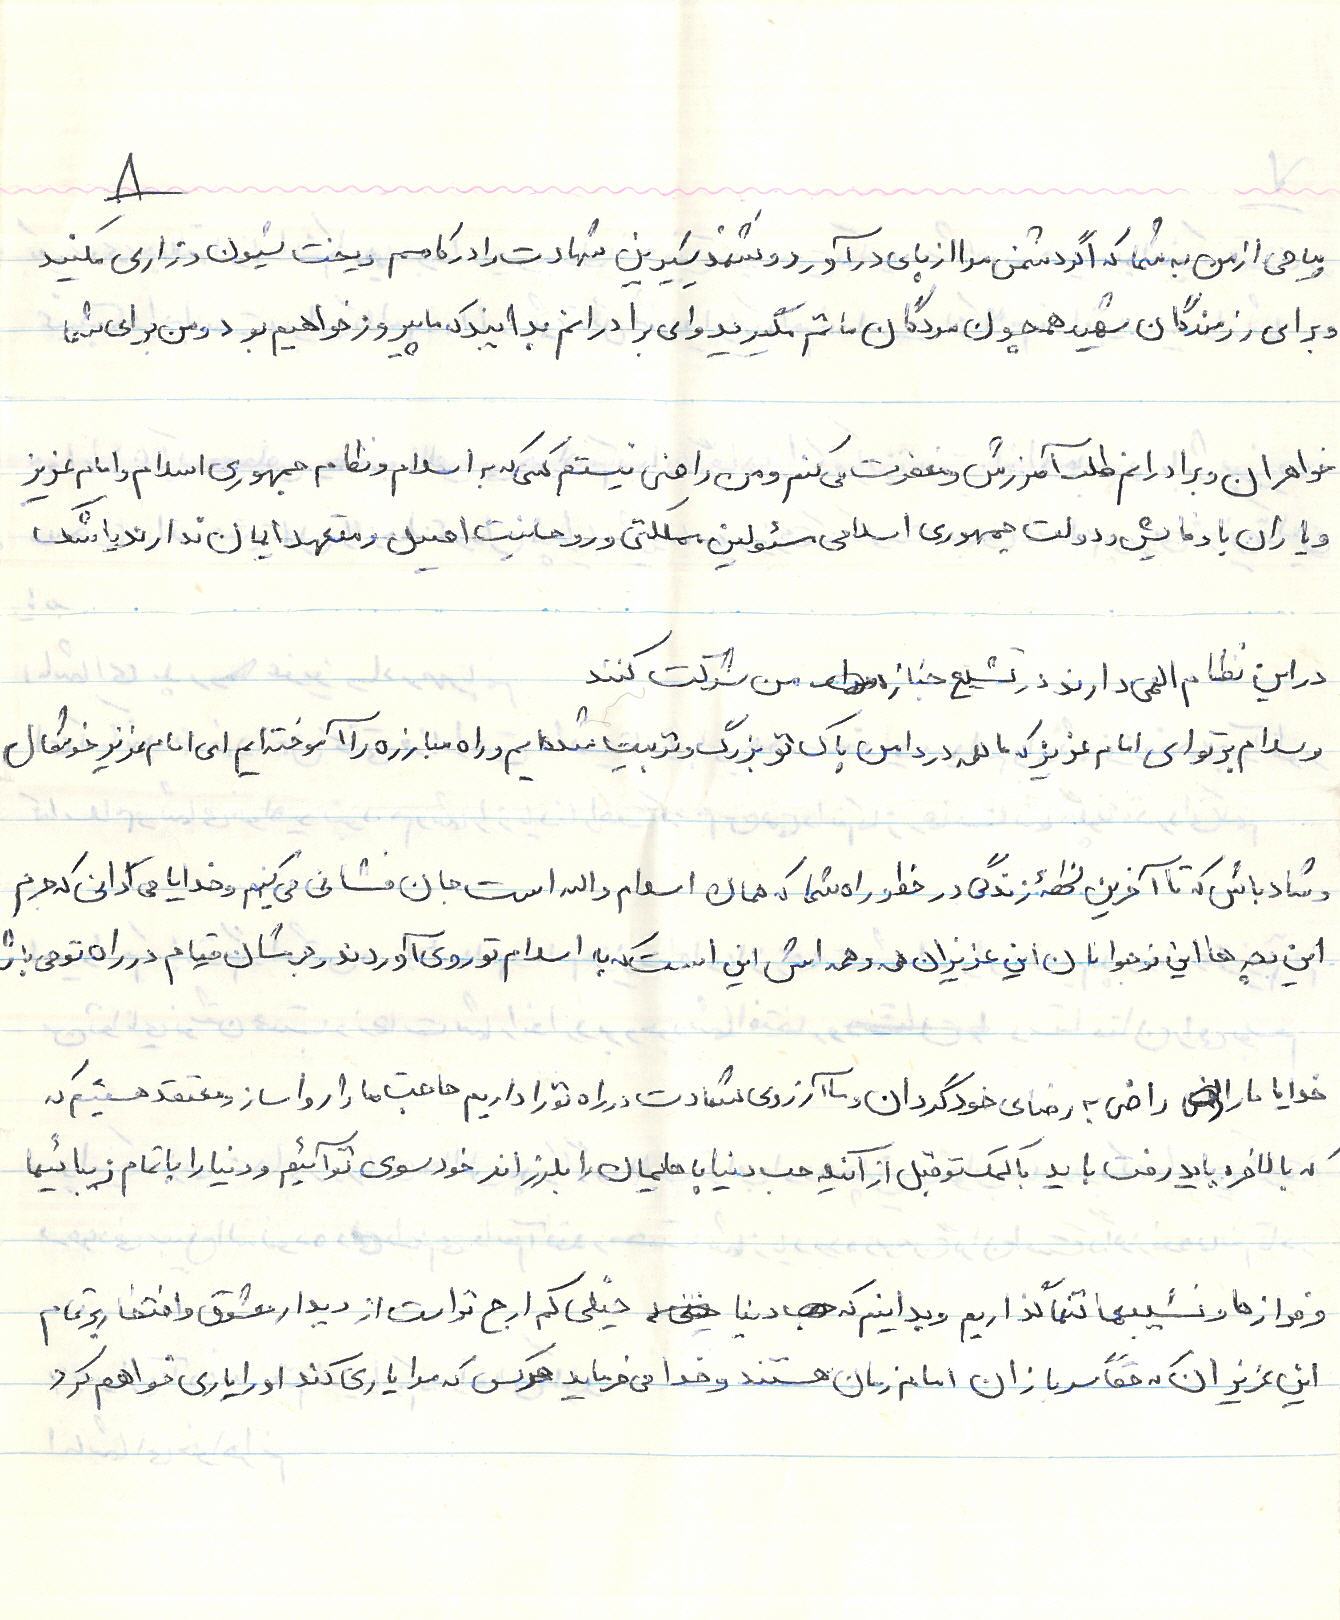 ۸
پیامی از من به شما که اگر دشمن مرا از پای در آورد و شهد شیرین شهادت را در کامم ریخت شیون و زاری مکنید
و برای رزمندگان شهید همچون مردگان ماتم مگیرید و ای برادرانم بدانید که ما پیروز خواهیم بود و من برای شما
خواهران و برادرانم طلب آمرزش و مغفرت می کنم و من راضی نیستم کسی که به اسلام و نظام جمهوری اسلام و امام عزیز
و یاران باوفایش و دولت جمهوری اسلامی مسئولین مملکتی و روحانیت اصیل و متعهد ایمان ندارند یا شک
در این نظام الهی دارند در تشییع جنازه من شرکت کنند
و سلام بر تو ای امام عزیز که ما همه در دامن پاک تو بزرگ و تربیت شده ایم و راه مبارزه را آموخته ایم ای امام عزیز خوشحال
و شاد باش که تا آخرین لحظه زندگی در خط و راه شما که همان اسلام و الله است جان فشانی می کنیم و خدایا می دانی که جرم
این بچه ها این نوجوانان این عزیزان همه و همه اش این است که به اسلام تو روی آوردند و جرمشان قیام در راه تو می باشد
خدایا ما را راضی به رضای خود گردان و ما آرزوی شهادت در راه تو را داریم حاجت ما را روا ساز و معتقد هستیم که
که بالاخره باید رفت باید با کمک تو قبل از آنکه حب دنیا پاهایمان را بلرزاند خود سوی تو آئیم و دنیا را با تمام زیبائیها
و فرازها و نشیبها تنها گذاریم و بدانیم که دنیا خیلی کم ارج تر است از دیدار معشوق و افتخار بر تمام
این عزیزان که حقاً سربازان امام زمان هستند و خدا می فرماید هر کس که مرا یاری کند او را یاری خواهم کرد